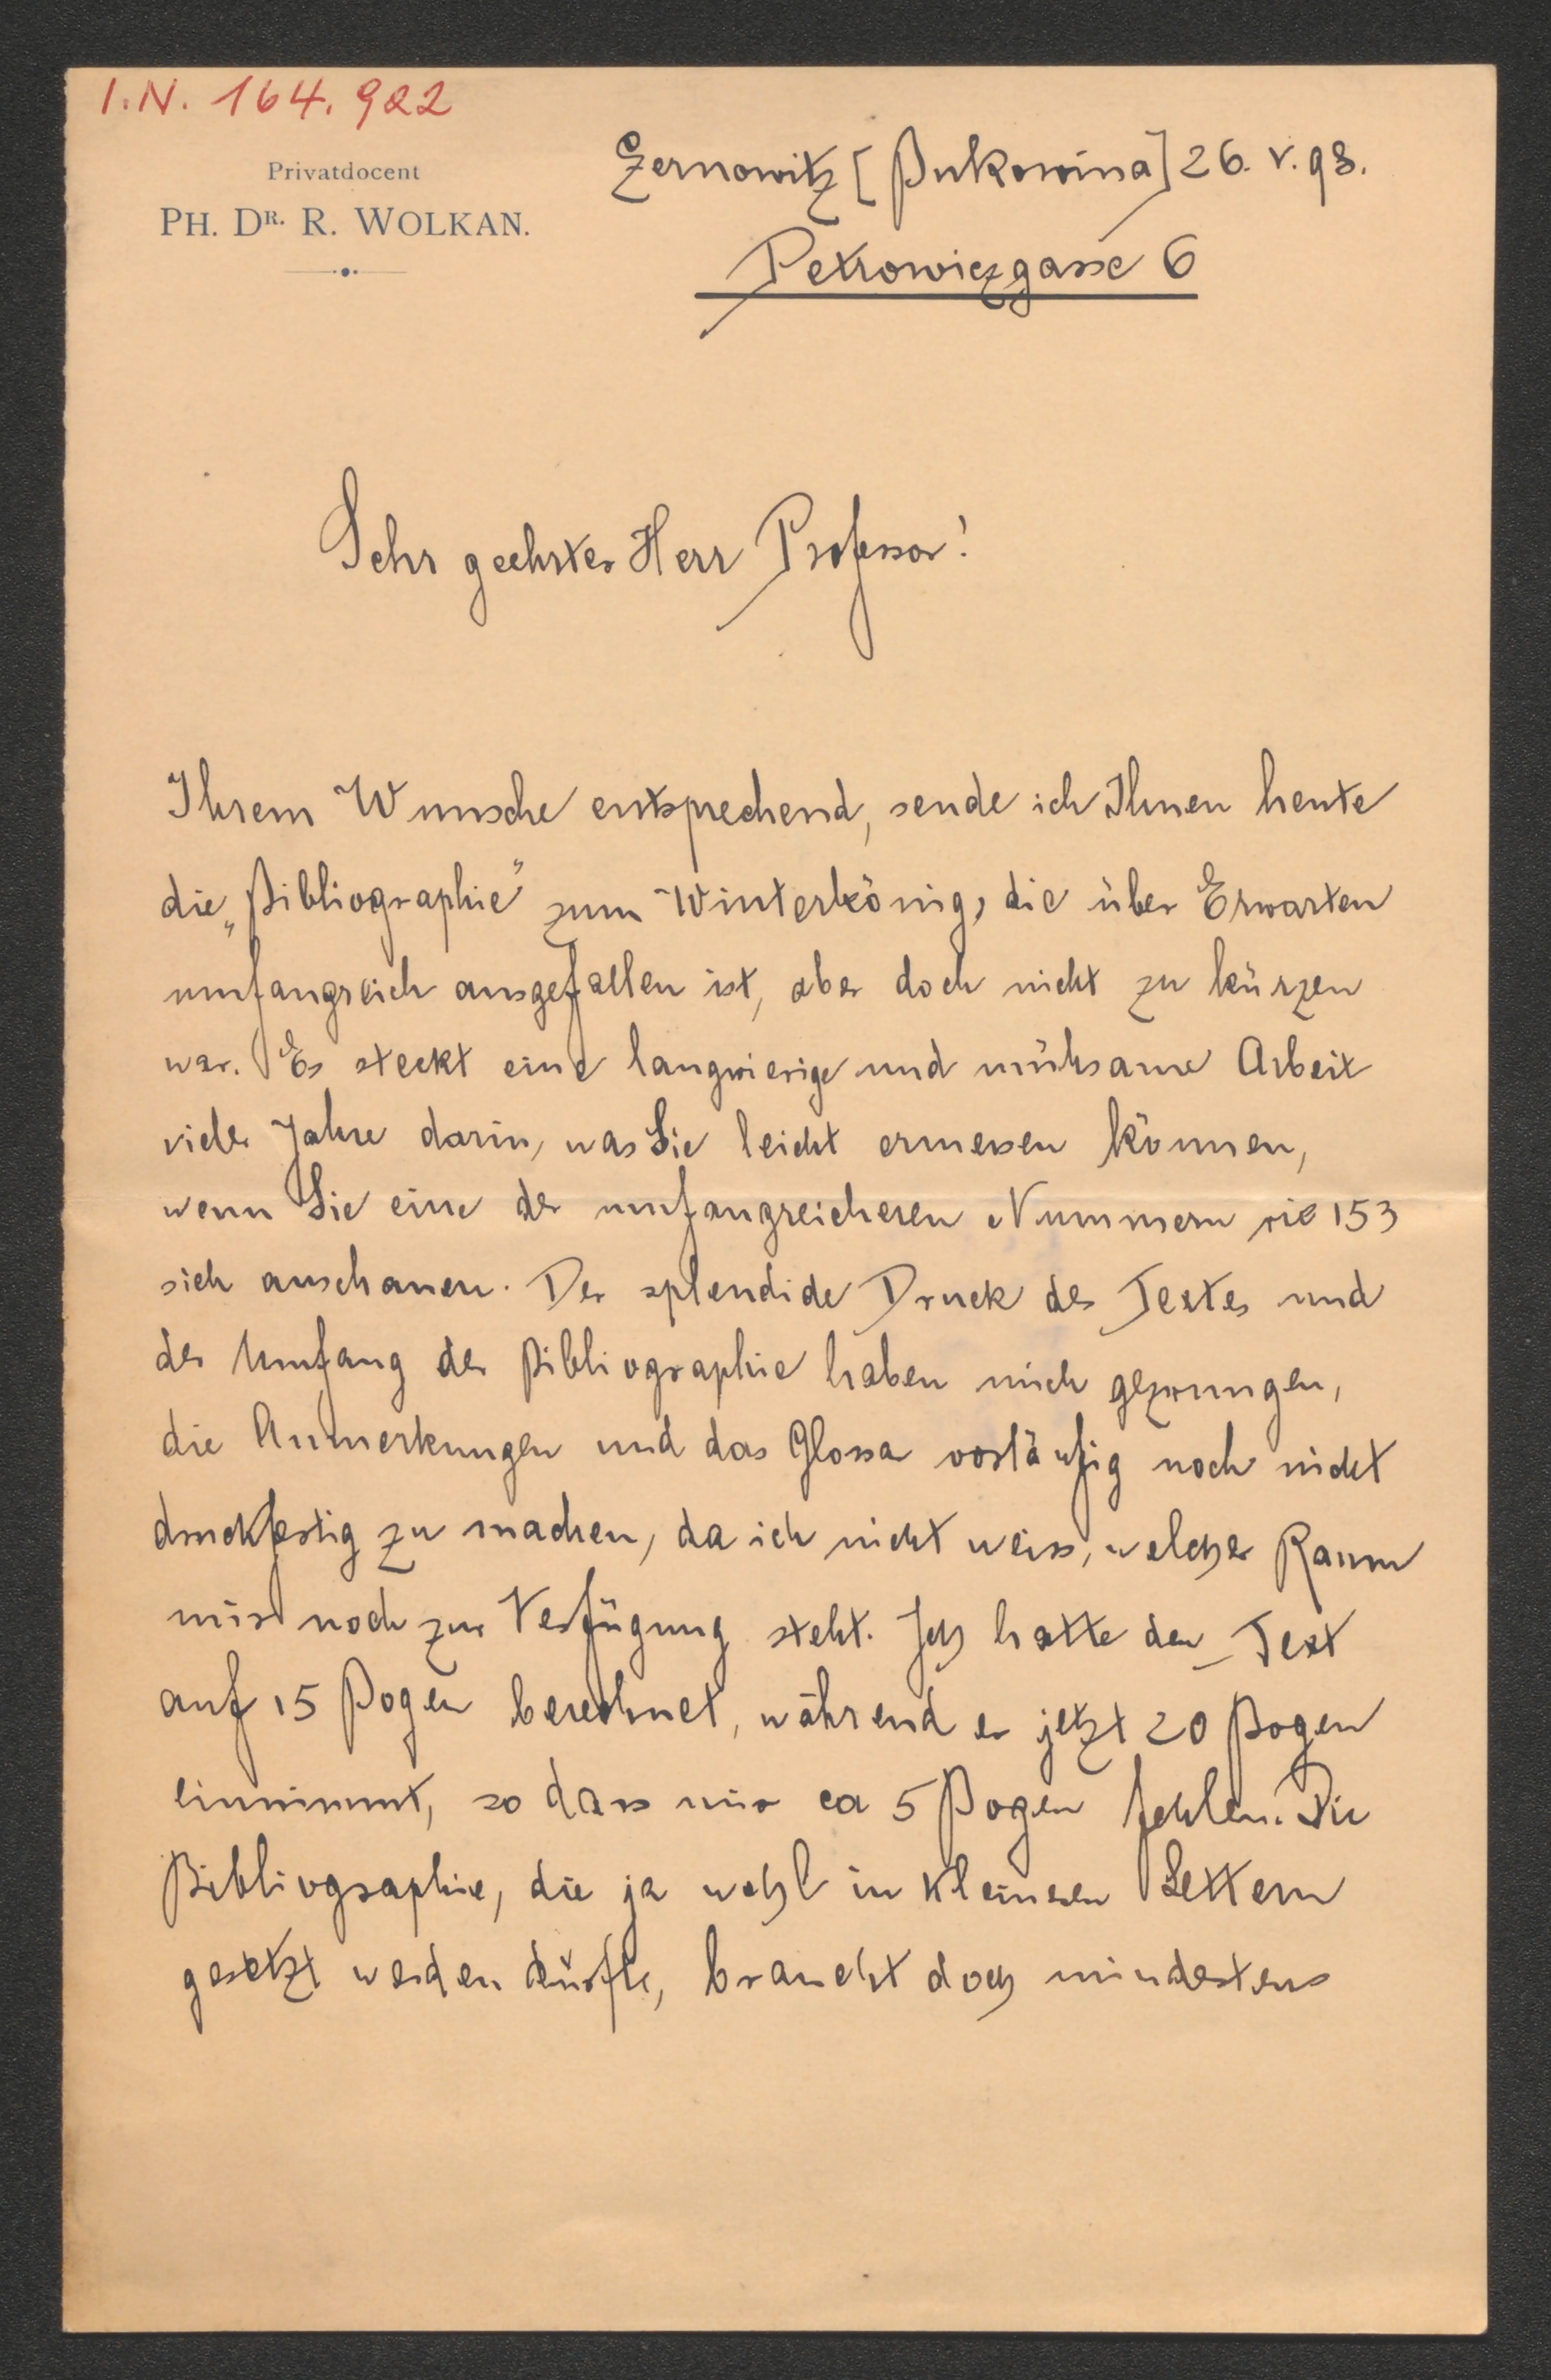 I.N. 164.922
Privatdocent
PH. DR. R. WOLKAN.
Czernowitz [Bukowina] 26. V. 98.
Petrowiczgasse 6
Sehr geehrter Herr Professor!
Ihrem Wunsche entsprechend, sende ich Ihnen heute
die „Bibliographie" zum Winterkönig, die über Erwarten
umfangreich ausgefallen ist, aber doch nicht zu kürzen
war. Es steckt eine langwierige und mühsame Arbeit
vieler Jahre darin, was Sie leicht ermessen können,
wenn Sie eine der umfangreicheren Nummern wie 153
sich anschauen. Der splendide Druck des Textes und
der Umfang der Bibliographie haben mich gezwungen,
die Anmerkungen und das Glossar vorläufig noch nicht
druckfertig zu machen, da ich nicht weiss, welcher Raum
mir noch zur Verfügung steht. Ich hatte den Text
auf 15 Bogen berechnet, während er jetzt 20 Bogen
einnimmt, so dass mir ca 5 Bogen fehlen. Die
Bibliographie, die ja wohl in kleineren Lettern
gesetzt werden dürfte, braucht doch mindestens